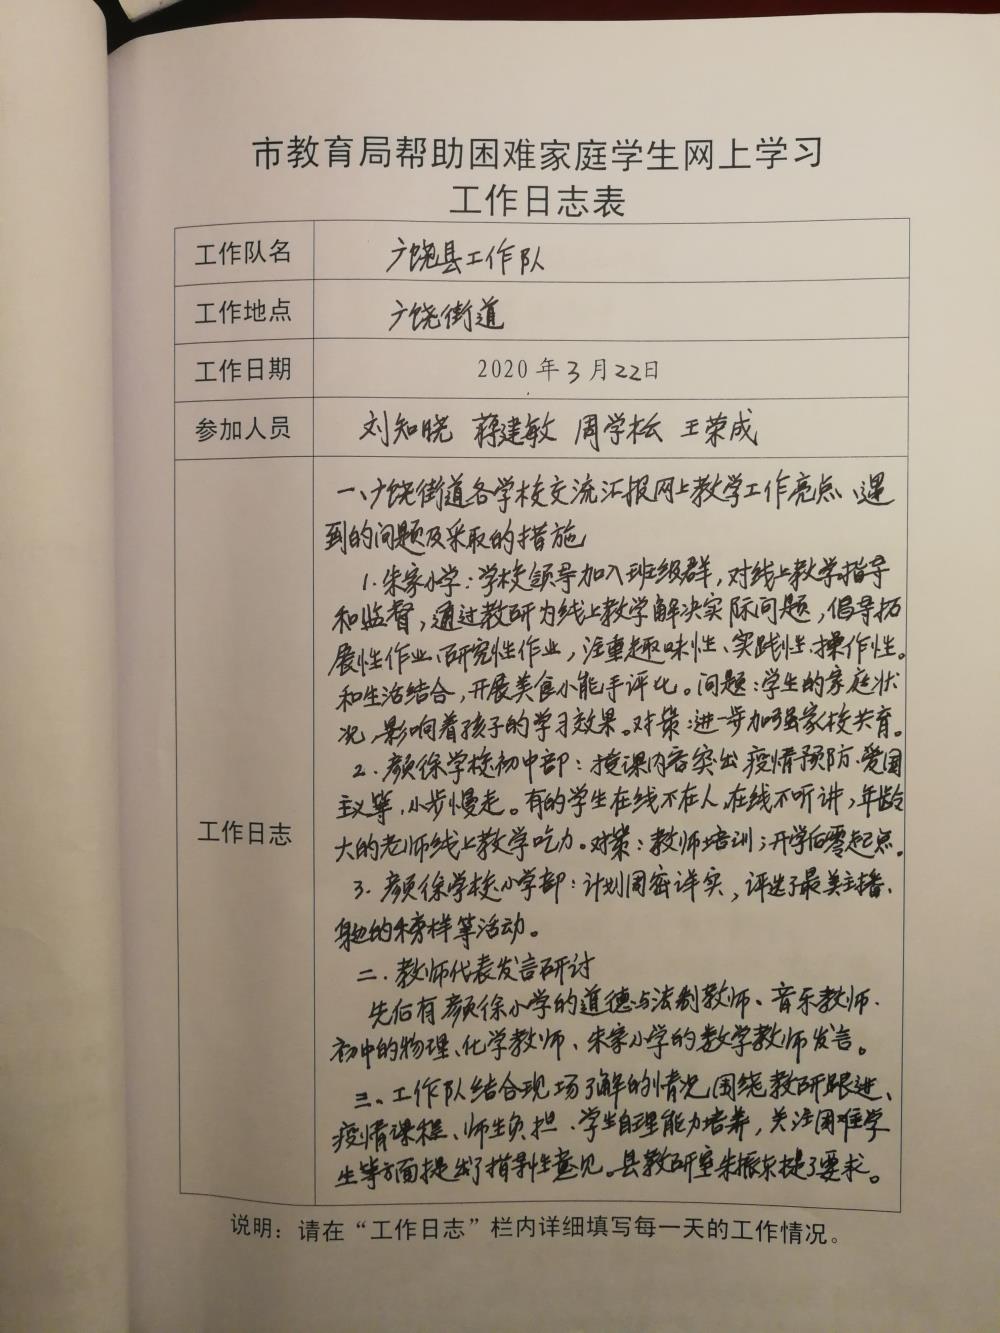 市教育局帮助困难家庭学生网上学习
工作日志表
工作队名 广饶县工作队
工作地点 广饶街道
工作日期 2020年3月22日
参加人员 刘知晓 蒋建敏 周学松 王荣成
工作日志
一、广饶街道各学校交流汇报网上教学工作亮点、遇
到的问题及采取的措施
1.朱家小学:学校领导加入班级群,对线上教学指导
和监督,通过教研为线上教学解决实际问题,倡导拓
展性作业、研究性作业,注重趣味性、实践性、操作性。
和生活结合,开展美食小能手评比。问题:学生的家庭状
况,影响着孩子的学习效果。对策:进一步加强家校共育。
2.颜徐学校初中部:授课内容突出疫情预防、爱国
主义等,小步慢走。有的学生在线不在人,在线不听讲,年龄
大的老师线上教学吃力。对策:教师培训;开学后零起点。
3.颜徐学校小学部:计划周密详实,评选了最美主播、
身边的榜样等活动。
二.教师代表发言研讨
先后有颜徐小学的道德与法制教师、音乐教师.
初中的物理、化学教师、朱家小学的数学教师发言。
三、工作队结合现场了解的情况,围绕教研跟进、
疫情课程、师生负担、学生自理能力培养,关注困难学
生等方面提出了指导性意见。县教研室朱振东提了要求。
说明:请在“工作日志”栏内详细填写每一天的工作情况。